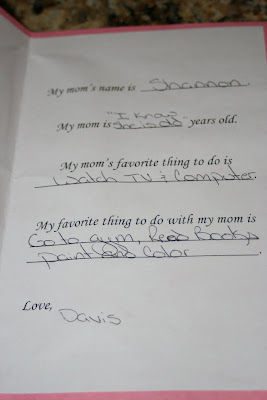 My mom's name is Shannon.
"I know
My mom is she is old" years old.
My mom's favorite thing to do is
Watch TV & Computer.
My favorite thing to do with my mom is
Go to gym, Read Books
paint and Color.
Love,
Davis